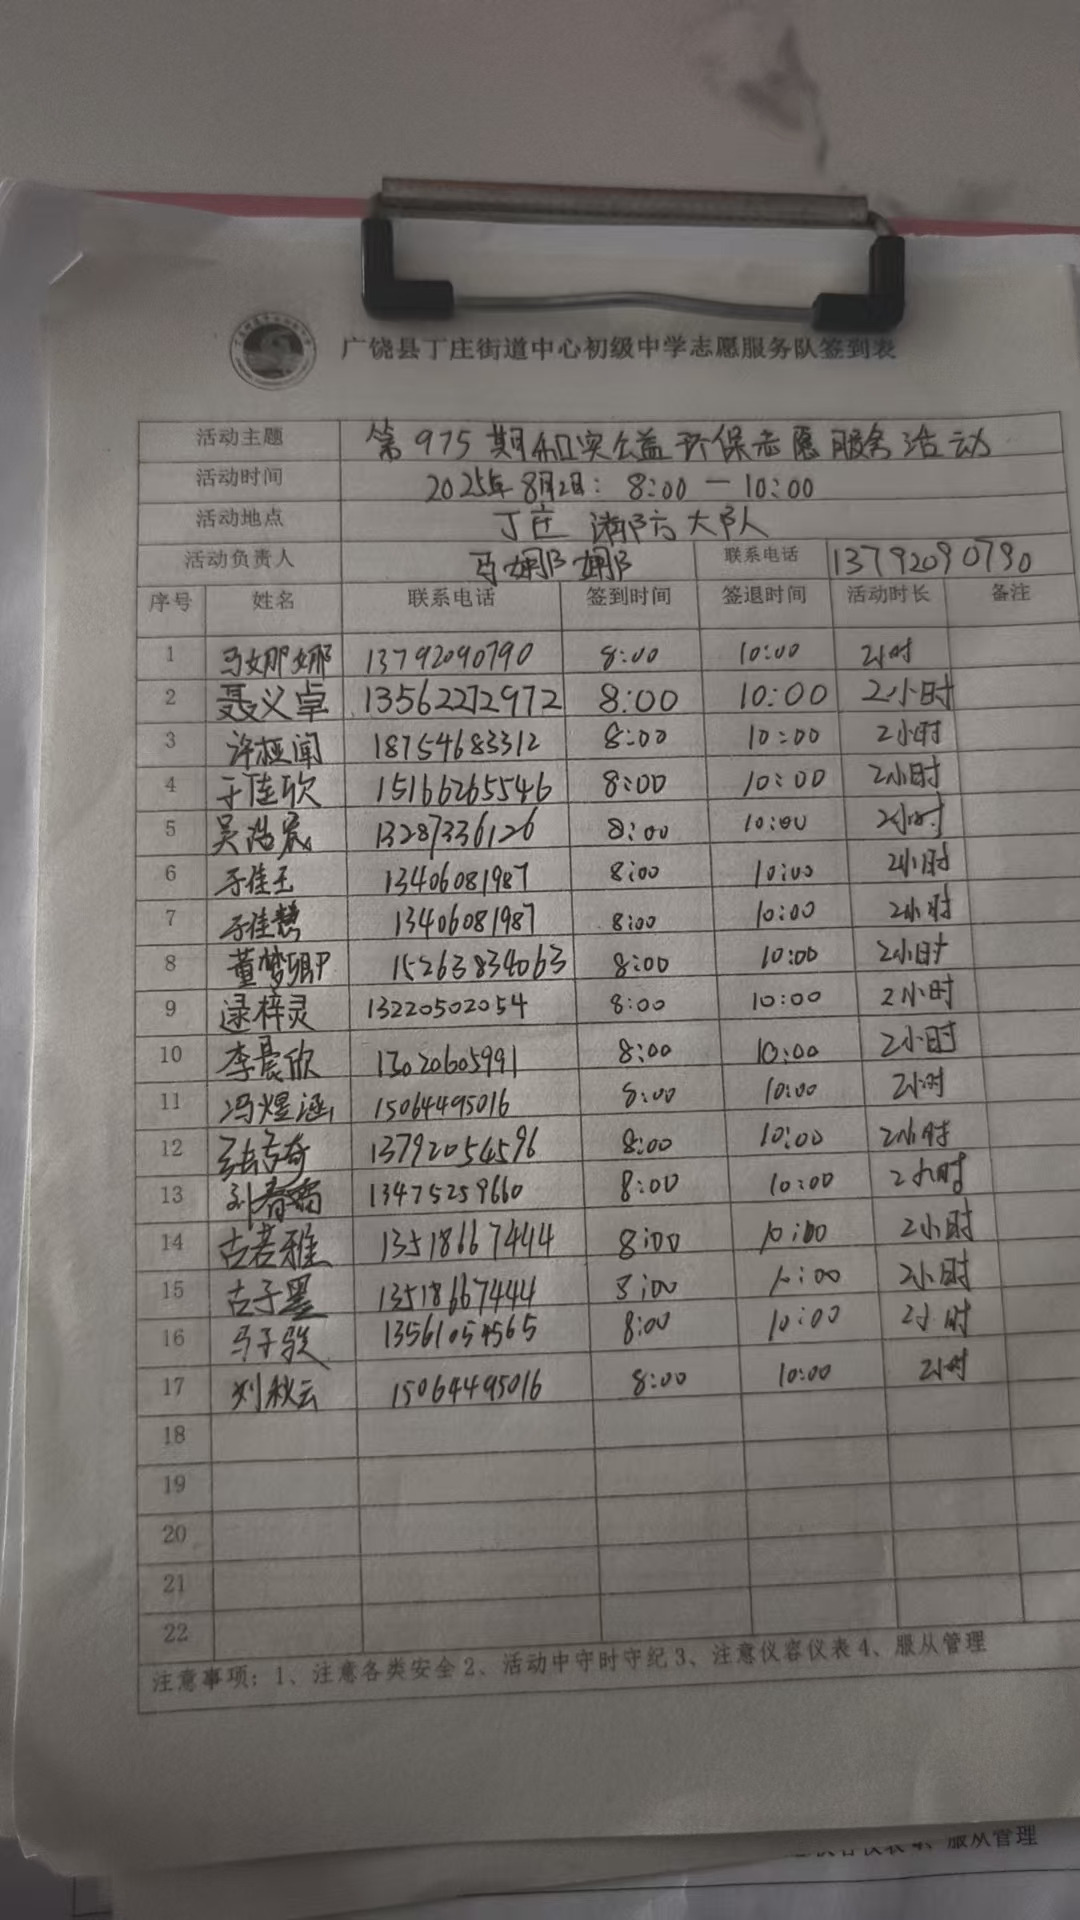 广饶县丁庄街道中心初级中学志愿服务队签到表
活动主题 第975期和实公益环保志愿服务活动
活动时间 2025年8月2日：8:00—10:00
活动地点 丁庄 大队
活动负责人 马娜娜 联系电话 13792090790
序号 姓名 联系电话 签到时间 签退时间 活动时长 备注
1 马娜娜 13792090790 8:00 10:00 2小时
2 聂义卓 13562272972 8:00 10:00 2小时
3 许桓闻 18754683312 8:00 10:00 2小时
4 于佳欣 15166265546 8:00 10:00 2小时
5 吴浩宸 13287336126 8:00 10:00 2小时
6 于佳玉 13406081987 8:00 10:00 2小时
7 于佳慧 13406081987 8:00 10:00 2小时
8 董梦 15263834063 8:00 10:00 2小时
9 逯梓灵 13220502054 8:00 10:00 2小时
10 李晨欣 13020605991 8:00 10:00 2小时
11 冯煜涵 15064495016 8:00 10:00 2小时
12 张传奇 13792054596 8:00 10:00 2小时
13 刘春 13475259660 8:00 10:00 2小时
14 古若雅 13518667444 8:00 10:00 2小时
15 古子墨 13518667444 8:00 10:00 2小时
16 马子骁 13561054565 8:00 10:00 2小时
17 刘秋云 15064495016 8:00 10:00 2小时
18
19
20
21
22
注意事项：1、注意各类安全 2、活动中守时守纪 3、注意仪容仪表 4、服从管理
服从管理